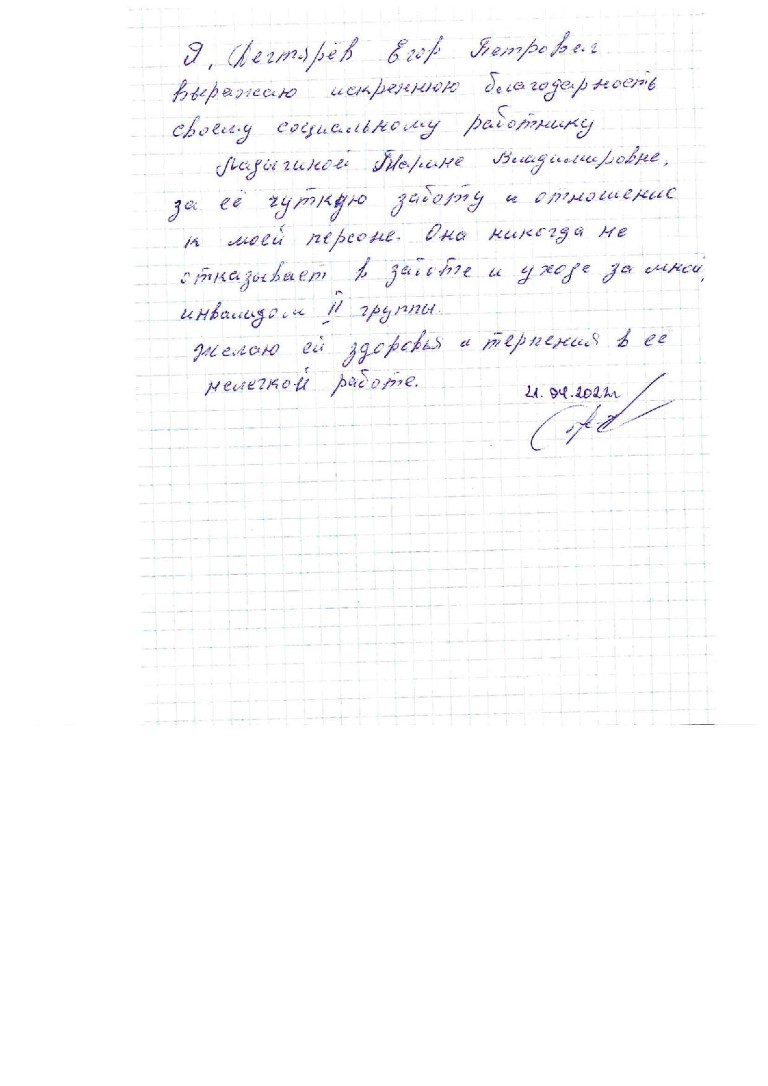 Я, Дегтярёв Егор Петрович
выражаю искреннюю благодарность
своему социальному работнику
Ладыгиной Марине Владимировне,
за её чуткую заботу и отношение
к моей персоне. Она никогда не
отказывает в заботе и уходе за мной,
инвалидом II группы.
Желаю ей здоровья и терпения в ее
нелегкой работе.
21.04.2022г